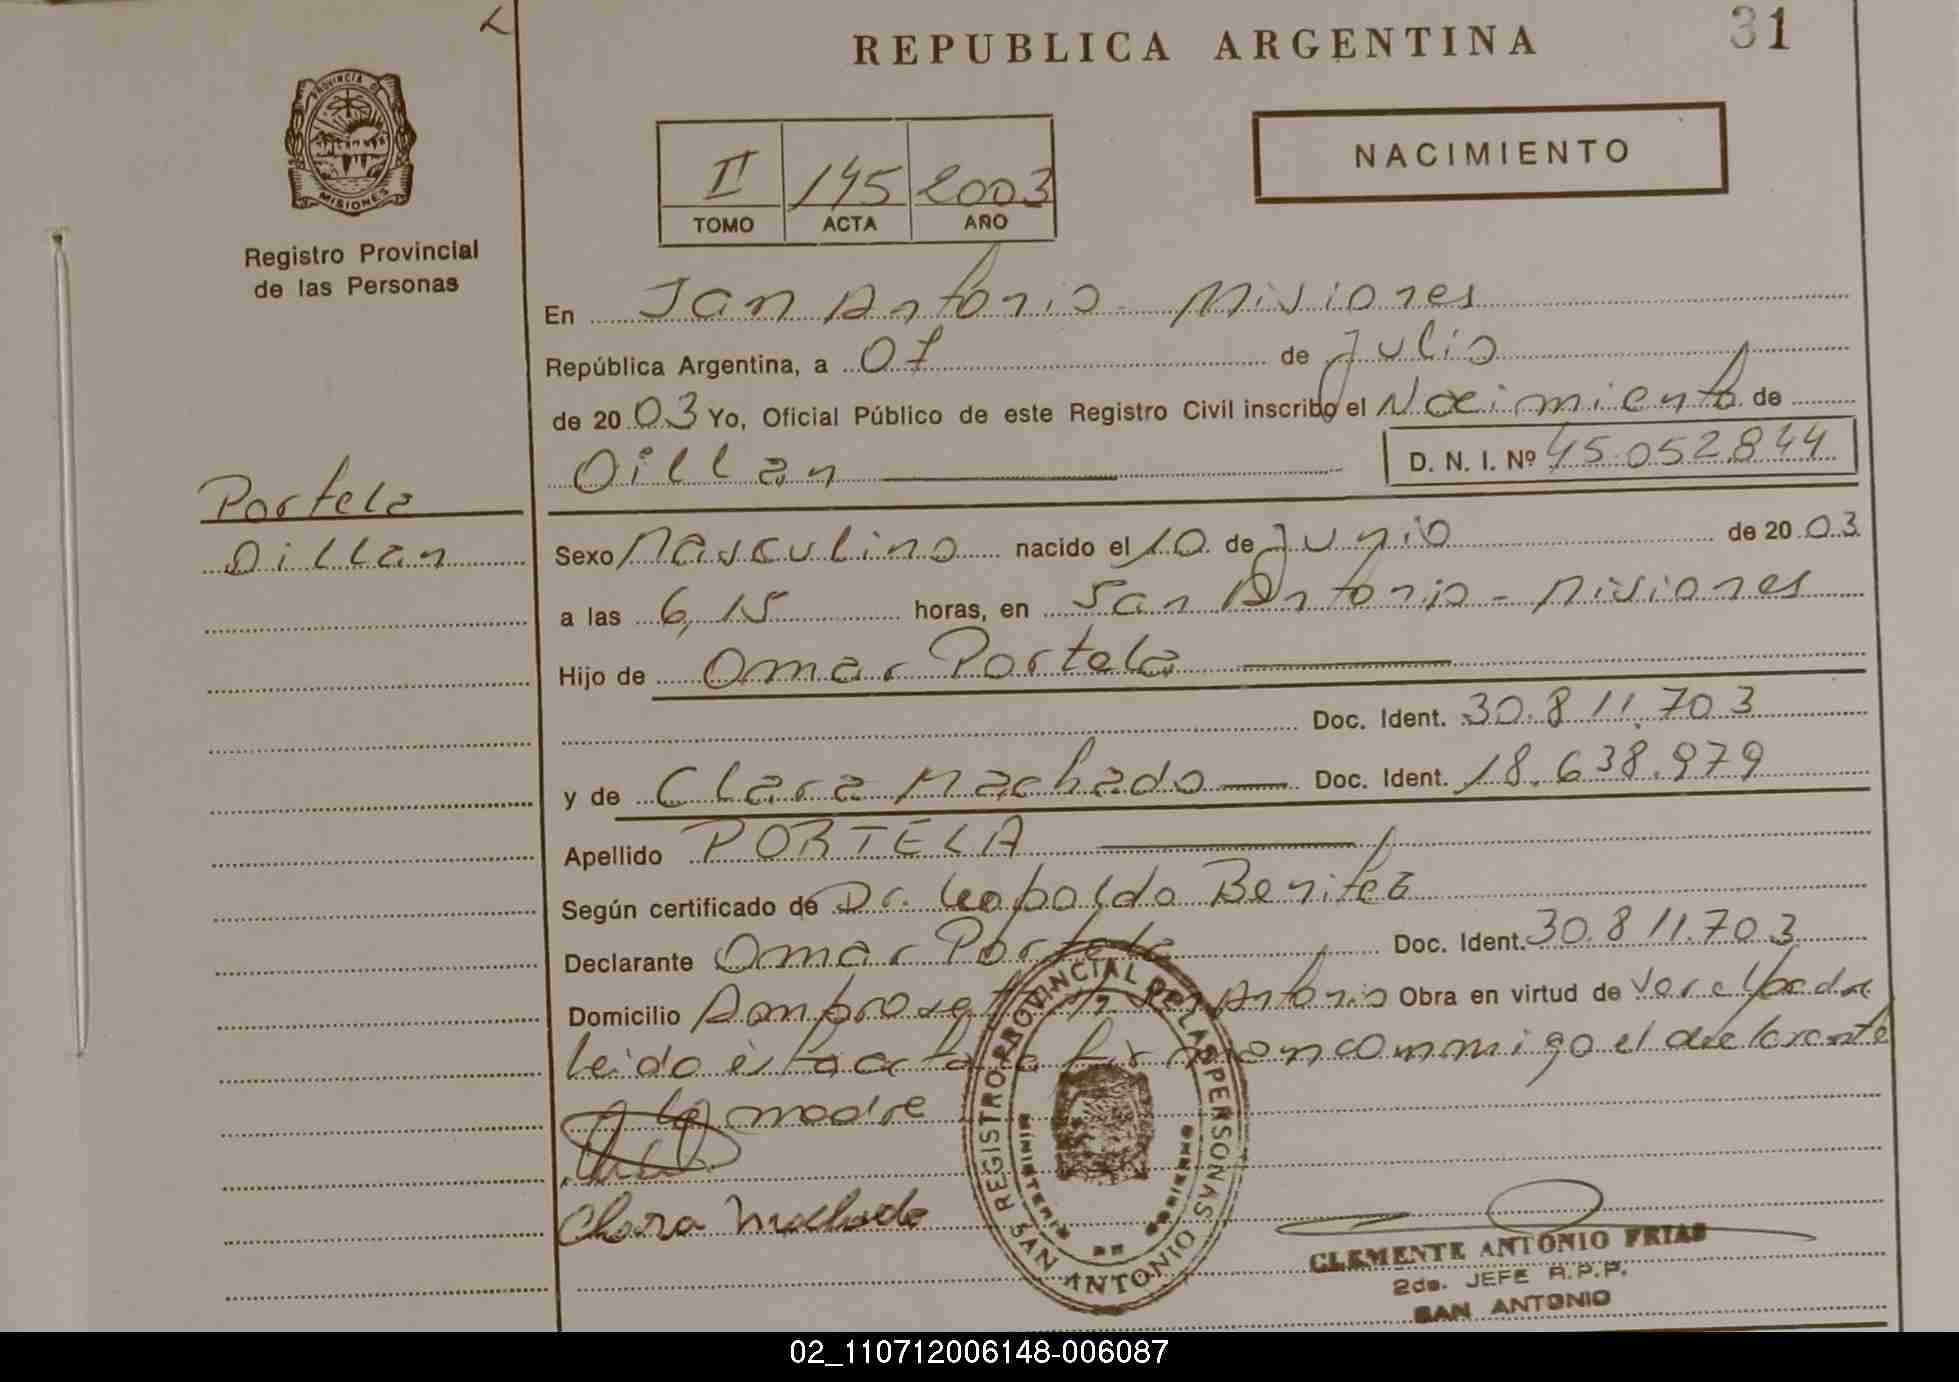 REPUBLICA ARGENTINA
31
PROVINCIA DE
MISIONES
Registro Provincial
de las Personas
II 145 2003
TOMO ACTA AÑO
NACIMIENTO
En San Antonio - Misiones
República Argentina, a 07 de Julio
de 2003 Yo, Oficial Público de este Registro Civil inscribo el Nacimiento de
Dillan
D. N. I. Nº 45.052.844
Portela
Dillan
Sexo Masculino nacido el 10 de Junio de 2003
a las 6,15 horas, en San Antonio - Misiones
Hijo de Omar Portela
Doc. Ident. 30.811.703
y de Clara Machado Doc. Ident. 18.638.979
Apellido PORTELA
Según certificado de Dr. Leopoldo Benitez
Declarante Omar Portela Doc. Ident. 30.811.703
Domicilio San Antonio Obra en virtud de
Leido esta acta firman conmigo el declarante
y la madre
Clara Machado
REGISTRO PROVINCIAL DE LAS PERSONAS
MINISTERIO DE GOBIERNO
SAN ANTONIO
CLEMENTE ANTONIO FRIAS
2do. JEFE R.P.P.
SAN ANTONIO
02_110712006148-006087